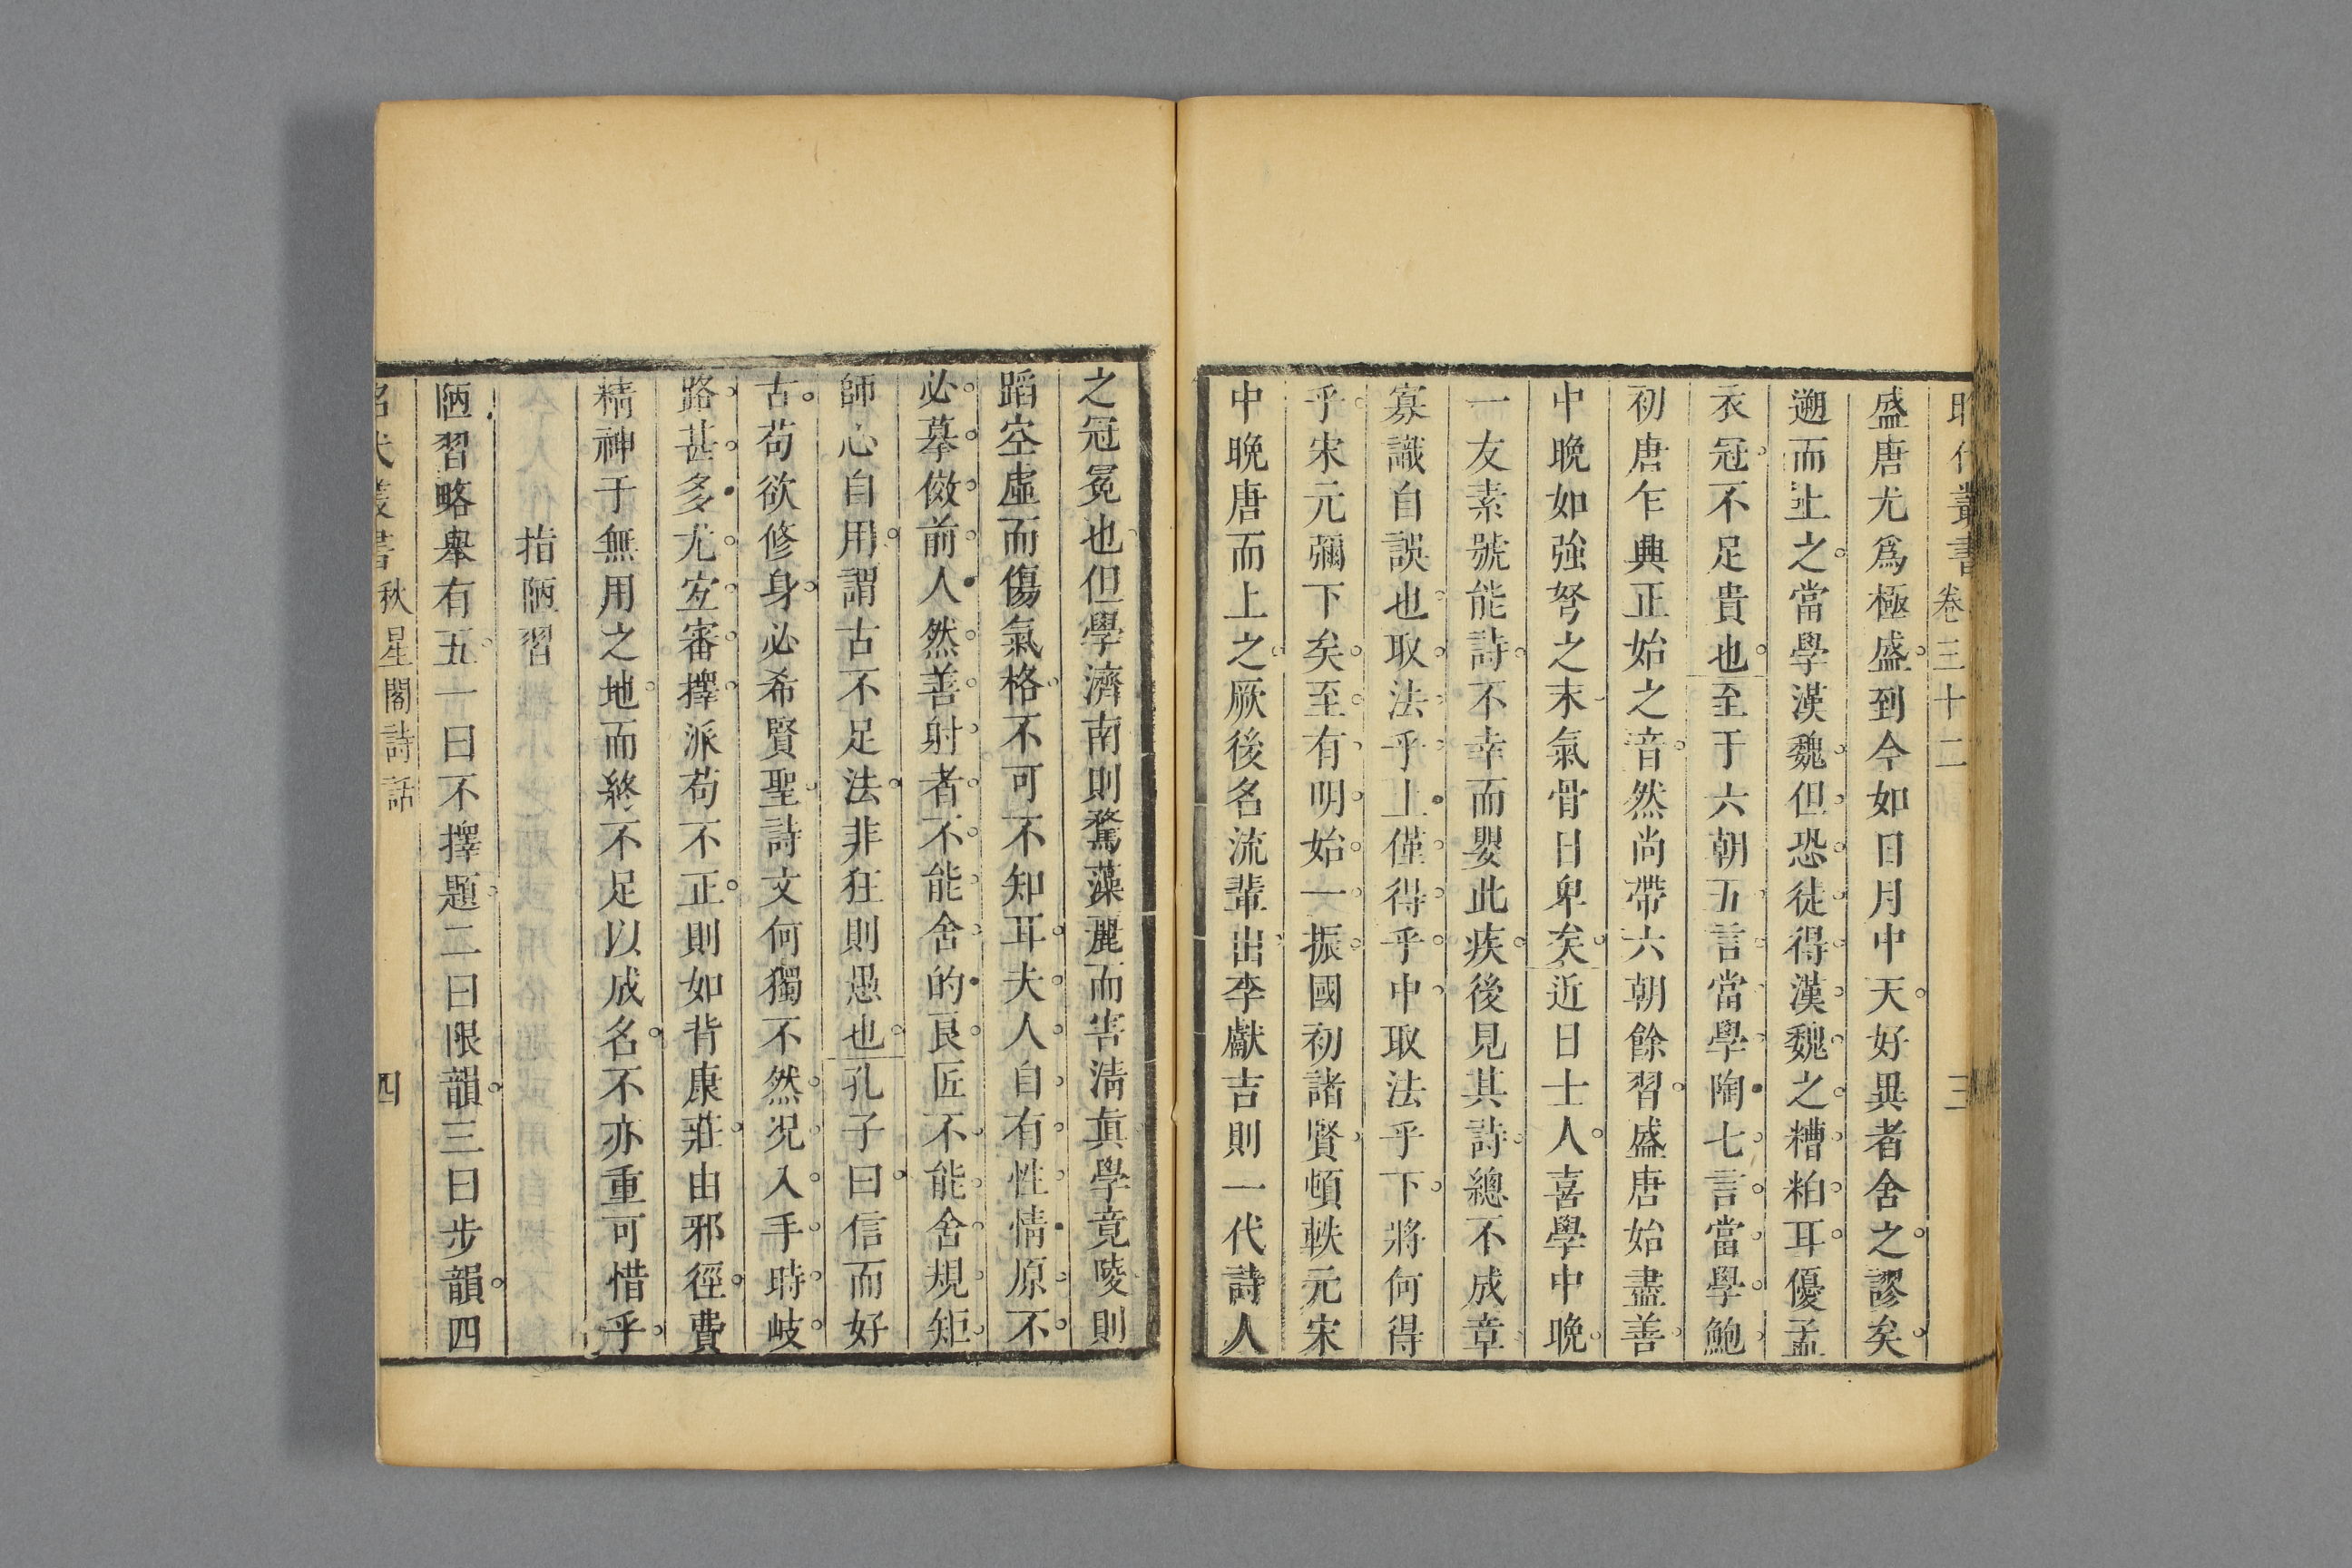 昭代叢書 卷三十二 三
盛唐尤爲極盛到今如日月中天好異者舍之謬矣
遡而上之當學漢魏但恐徒得漢魏之糟粕耳優孟
衣冠不足貴也至于六朝五言當學陶七言當學鮑
初唐乍典正始之音然尚帶六朝餘習盛唐始盡善
中晚如強弩之末氣骨日卑矣近日士人喜學中晚
一友素號能詩不幸而嬰此疾後見其詩總不成章
寡識自誤也取法乎上僅得乎中取法乎下將何得
乎宋元彌下矣至有明始一振國初諸賢頓軼元宋
中晚唐而上之厥後名流輩出李獻吉則一代詩人
之冠冕也但學濟南則騖藻麗而害淸眞學竟陵則
蹈空虛而傷氣格不可不知耳夫人自有性情原不
必摹倣前人然善射者不能舍的良匠不能舍規矩
師心自用謂古不足法非狂則愚也孔子曰信而好
古苟欲修身必希賢聖詩文何獨不然況入手時岐
路甚多尤宐審擇派苟不正則如背康莊由邪徑費
精神于無用之地而終不足以成名不亦重可惜乎
指陋習
陋習略舉有五一曰不擇題二曰限韻三曰步韻四
昭代叢書 秋星閣詩話 四